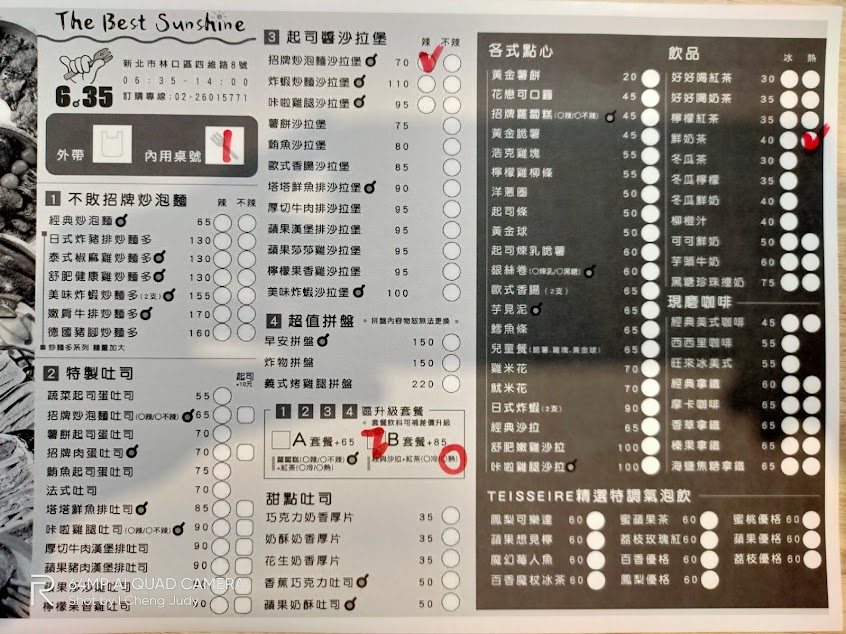 The Best Sunshine
6.35
新北市林口區四維路8號
06:35-14:00
訂購專線:02-26015771
外帶
內用桌號
1 不敗招牌炒泡麵 辣 不辣
經典炒泡麵 65
日式炸豬排炒麵多 130
泰式椒麻雞炒麵多 130
舒肥健康雞炒麵多 130
美味炸蝦炒麵多(2支) 155
嫩肩牛排炒麵多 170
德國豬腳炒麵多 160
炒麵多系列 麵量加大
2 特製吐司 起司+10元
蔬菜起司蛋吐司 55
招牌炒泡麵吐司(○辣/○不辣) 65
薯餅起司蛋吐司 70
招牌肉蛋吐司 70
鮪魚起司蛋吐司 75
法式吐司 70
塔塔鮮魚排吐司 90
咔啦雞腿吐司(○辣/○不辣) 90
厚切牛肉漢堡排吐司 90
蘋果豬肉漢堡排吐司 90
檸檬果香雞吐司 90
3 起司醬沙拉堡 辣 不辣
招牌炒泡麵沙拉堡 70
炸蝦炒麵沙拉堡 110
咔啦雞腿沙拉堡 95
薯餅沙拉堡 75
鮪魚沙拉堡 80
歐式香腸沙拉堡 85
塔塔鮮魚排沙拉堡 90
厚切牛肉排沙拉堡 95
蘋果漢堡排沙拉堡 95
蘋果莎莎雞沙拉堡 95
檸檬果香雞沙拉堡 95
美味炸蝦沙拉堡 100
4 超值拼盤 ＊拼盤內容物恕無法更換＊
早安拼盤 150
炸物拼盤 150
義式烤雞腿拼盤 220
1 2 3 4 區升級套餐
＊套餐飲料可補差價升級
A套餐+65
蘿蔔糕(○辣/○不辣)
+紅茶(○冷/○熱)
B套餐+85
經典沙拉+紅茶(○冷/○熱)
甜點吐司
巧克力奶香厚片 35
奶酥奶香厚片 35
花生奶香厚片 35
香蕉巧克力吐司 50
蘋果奶酥吐司 50
各式點心
黃金薯餅 20
花戀可口圓 45
招牌蘿蔔糕(○辣/○不辣) 45
黃金脆薯 45
浩克雞塊 55
檸檬雞柳條 55
洋蔥圈 50
起司條 50
黃金球 50
起司煉乳脆薯 60
銀絲卷(○煉乳/○黑糖) 60
歐式香腸(2支) 60
芋見泥 65
鱈魚條 65
兒童餐(脆薯.雞塊.黃金球) 65
雞米花 70
魷米花 70
日式炸蝦(2支) 90
經典沙拉 65
舒肥嫩雞沙拉 100
咔啦雞腿沙拉 100
飲品 冰 熱
好好喝紅茶 30
好好喝奶茶 35
檸檬紅茶 35
鮮奶茶 40
冬瓜茶 30
冬瓜檸檬 35
冬瓜鮮奶 40
柳橙汁 40
可可鮮奶 50
芋頭牛奶 60
黑糖珍珠撞奶 75
現磨咖啡
經典美式咖啡 45
西西里咖啡 55
旺來冰美式 55
經典拿鐵 60
摩卡咖啡 65
香草拿鐵 65
榛果拿鐵 65
海鹽焦糖拿鐵 65
TEISSEIRE精選特調氣泡飲
鳳梨可樂達 60 蜜蘋果茶 60 蜜桃優格 60
蘋果想見檸 60 荔枝玫瑰紅 60 蘋果優格 60
魔幻莓人魚 60 百香優格 60 荔枝優格 60
百香魔杖冰茶 60 鳳梨優格 60
64MP AI QUAD CAMERA
Shot by I Cheng Judy